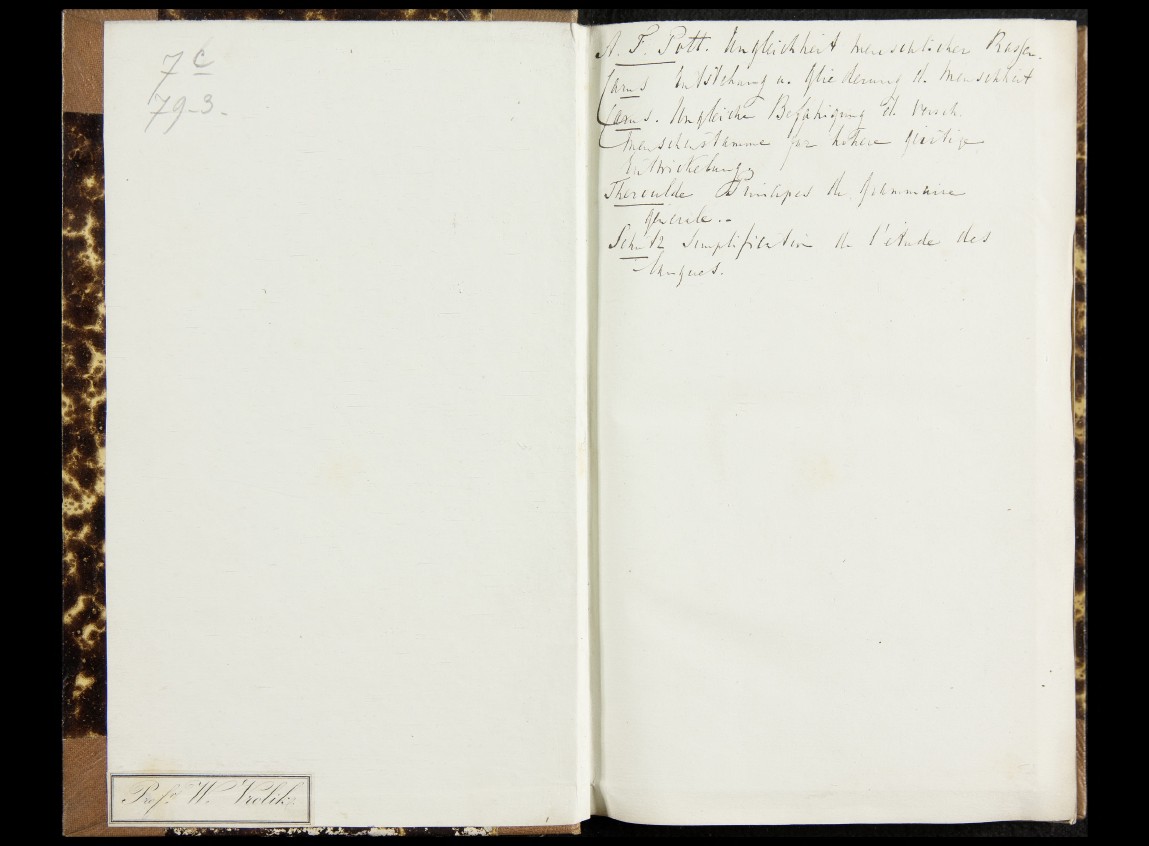 7 c
79-3.
Prof.r W. Vrolik.
A. F. Pott. Ungleichheit menschlicher Rassen.
Carus Entstehung u. Gliederung d. Menschheit
Carus. Ungleiche Befähigung d. versch.
Menschenstamme fur hohere geistige
Entwickelung
Theroulde Principes de grammaire
generale.-
Schutz Simplification de l'étude des
langues.